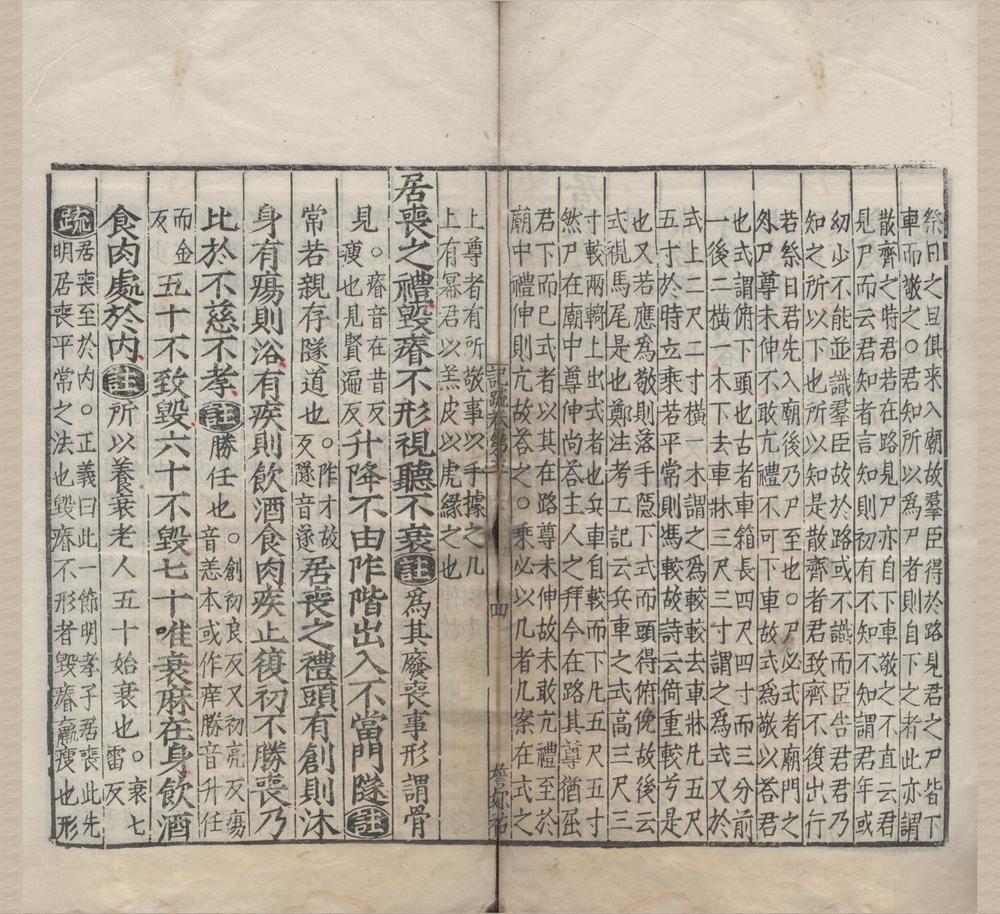 祭日之旦俱来入廟故羣臣得於路見君之尸皆下
車而敬之。君知所以為尸者則自下之者此亦謂
散齊之時君若在路見尸亦自下車敬之不直云君
見尸而云君知者言知則初有不知不知謂君年或
幼少不能並識羣臣故於路或不識而臣告君君乃
知之所以下也所以知是散齊者君致齊不復出行
若祭日君先入廟後乃尸至也。尸必式者廟門之
外尸尊未伸不敢亢禮不可下車故式為敬以荅君
也式謂俯下頭也古者車箱長四尺四寸而三分前
一後二橫一木下去車牀三尺三寸謂之為式又於
式上二尺二寸橫一木謂之為較較去車牀凡五尺
五寸於時立乘若平常則馮較故詩云倚重較兮是
也又若應為敬則落手隱下式而頭得俯俛故後云
式視馬尾是也鄭注考工記云兵車之式高三尺三
寸較兩輢上出式者也兵車自較而下凡五尺五寸
然尸在廟中尊伸尚荅主人之拜今在路其尊猶屈
君下而已式者以其在路尊未伸故未敢亢禮至於
廟中禮伸則亢故荅之。乘必以几者几案在式之
記疏卷第三 四
上尊者有所敬事以手據之几
上有冪君以羔皮以虎緣之也
居喪之禮毀瘠不形視聽不衰註為其廢喪事形謂骨
見。瘠音在昔反瘦也見賢遍反升降不由阼階出入不當門隧註
常若親存隧道也。阼才故反隧音遂居喪之禮頭有創則沐
身有瘍則浴有疾則飲酒食肉疾止復初不勝喪乃
比於不慈不孝註勝任也。創初良反又初亮反瘍音恙本或作痒勝音升任
而金反五十不致毀六十不毀七十唯衰麻在身飲酒
食肉處於内註所以養衰老人五十始衰也。衰七雷反
疏居喪至於内。正義曰此一節明孝子居喪此先
明居喪平常之法也毀瘠不形者毀瘠羸瘦也形